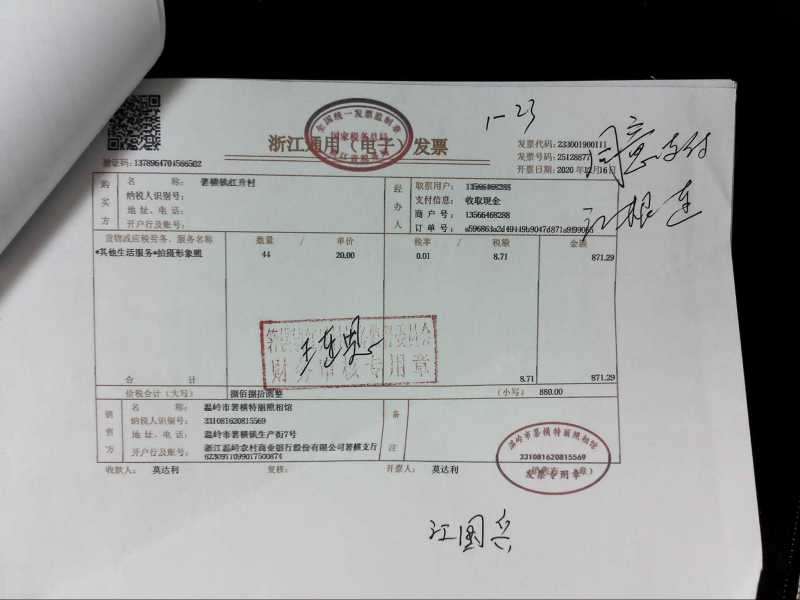 1-23
全国统一发票监制章
国家税务总局
浙江通用（电子）发票
同意支付
江根连
验证码：
发票代码：233001900111
发票号码：25128877
开票日期：2020 年12月16日
购买方
名　　称：箬横镇红升村
纳税人识别号：
地 址、电 话：
开户行及账号：
经办人
取票用户：13566468288
支付信息：收取现金
商 户 号：13566468288
订 单 号：
货物或应税劳务、服务名称 数量 / 单价 税率 / 税额 金额
*其他生活服务*拍摄形象照 44 20.00 0.01 8.71 871.29
财务审核专用章
合　　计 8.71 871.29
价税合计（大写） 捌佰捌拾圆整 （小写） 880.00
销售方
名　　称：温岭市箬横特丽照相馆
纳税人识别号：331081620815569
地 址、电 话：温岭市箬横镇生产街7号
开户行及账号：浙江温岭农村商业银行股份有限公司箬横支行
备注
温岭市箬横特丽照相馆
331081620815569
发票专用章
收款人：莫达利 复核： 开票人：莫达利
江国兵